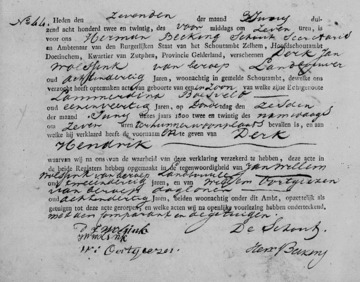 No. 44. Heden den zevenden der maand Juny dui-
zend acht honderd twee en twintig, des voor middags ten zeven uren, is
voor ons Herman Becking Schout Secretaris
en Ambtenaar van den Burgerlijken Staat van het Schoutambt Zelhem, Hoofdschoutambt
Doetinchem, Kwartier van Zutphen, Provincie Gelderland, verschenen Derk Jan
Wolsink van beroep Landbouwer
oud achtendertig Jaren, woonachtig in gemelde Schoutambt, dewelke ons
verzocht heeft optemaken eene Acte der geboorte van een zoon van zijne Echtgenoote
Lammerdina
oud eenenveertig Jaren, op Donderdag den zesden
der maand Juny dezes Jaars 1800 twee en twintig des namiddags
ten zeven uren bevallen is, en aan
welke hij verklaard heeft de voornamen te geven van Derk
Hendrik
waarvan wij na ons van de waarheid van deze verklaring verzekerd te hebben, deze acte in
de beide Registers hebben opgemaakt in de tegenwoordigheid van Jan Willem
Wolsink van beroep Landbouwer oud
Jaren, en van Willem Oortgiezen
van beroep daglooner oud
achtendertig Jaren, beiden woonachtig onder dit Ambt, opzettelijk als
getuigen tot deze acte geroepen, en welke acten wij na opentlijke voorlezing hebben onderteekend,
met den Comparant en de getuigen.
D J Wolsink De Schout,
J W Wolsink
W: Oortgiezen Herm Becking